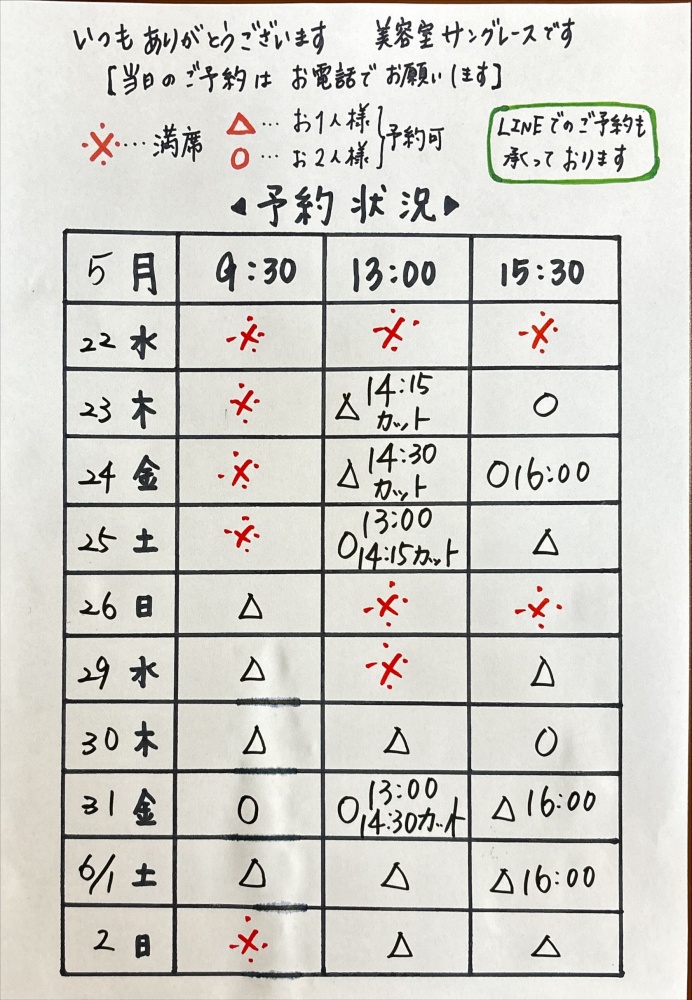 いつもありがとうございます 美容室サングレースです
[当日のご予約は お電話で お願いします]
※…満席
△…お1人様
○…お2人様
予約可
LINEでのご予約も
承っております
◀予約状況▶
5月 9:30 13:00 15:30
22 水 ※ ※ ※
23 木 ※ △14:15カット ○
24 金 ※ △14:30カット ○16:00
25 土 ※ ○13:00 14:15カット △
26 日 △ ※ ※
29 水 △ ※ △
30 木 △ △ ○
31 金 ○ ○13:00 14:30カット △16:00
6/1 土 △ △ △16:00
2 日 ※ △ △